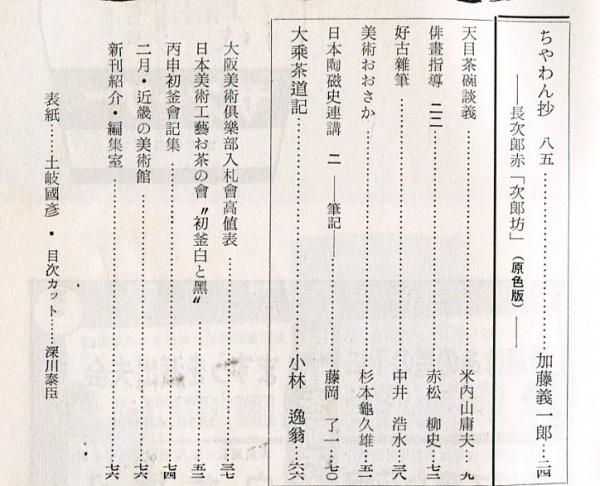 ちゃわん抄 八五……加藤義一郎…二四
――長次郎赤「次郎坊」(原色版)――
天目茶碗談義……米内山庸夫…九
俳畫指導 二二……赤松 柳史…七二
好古雜筆……中井 浩水…三八
美術おおさか……杉本龜久雄…五一
日本陶磁史連講 二 ――筆記――……藤岡 了一…七〇
大乘茶道記……小林 逸翁…六六
大阪美術俱樂部入札會高値表……三七
日本美術工藝お茶の會〝初釜白と黑〟……五二
丙申初釜會記集……七四
二月・近畿の美術館……七六
新刊紹介・編集室……七六
表紙……土岐國彥 ・ 目次カット……深川泰臣